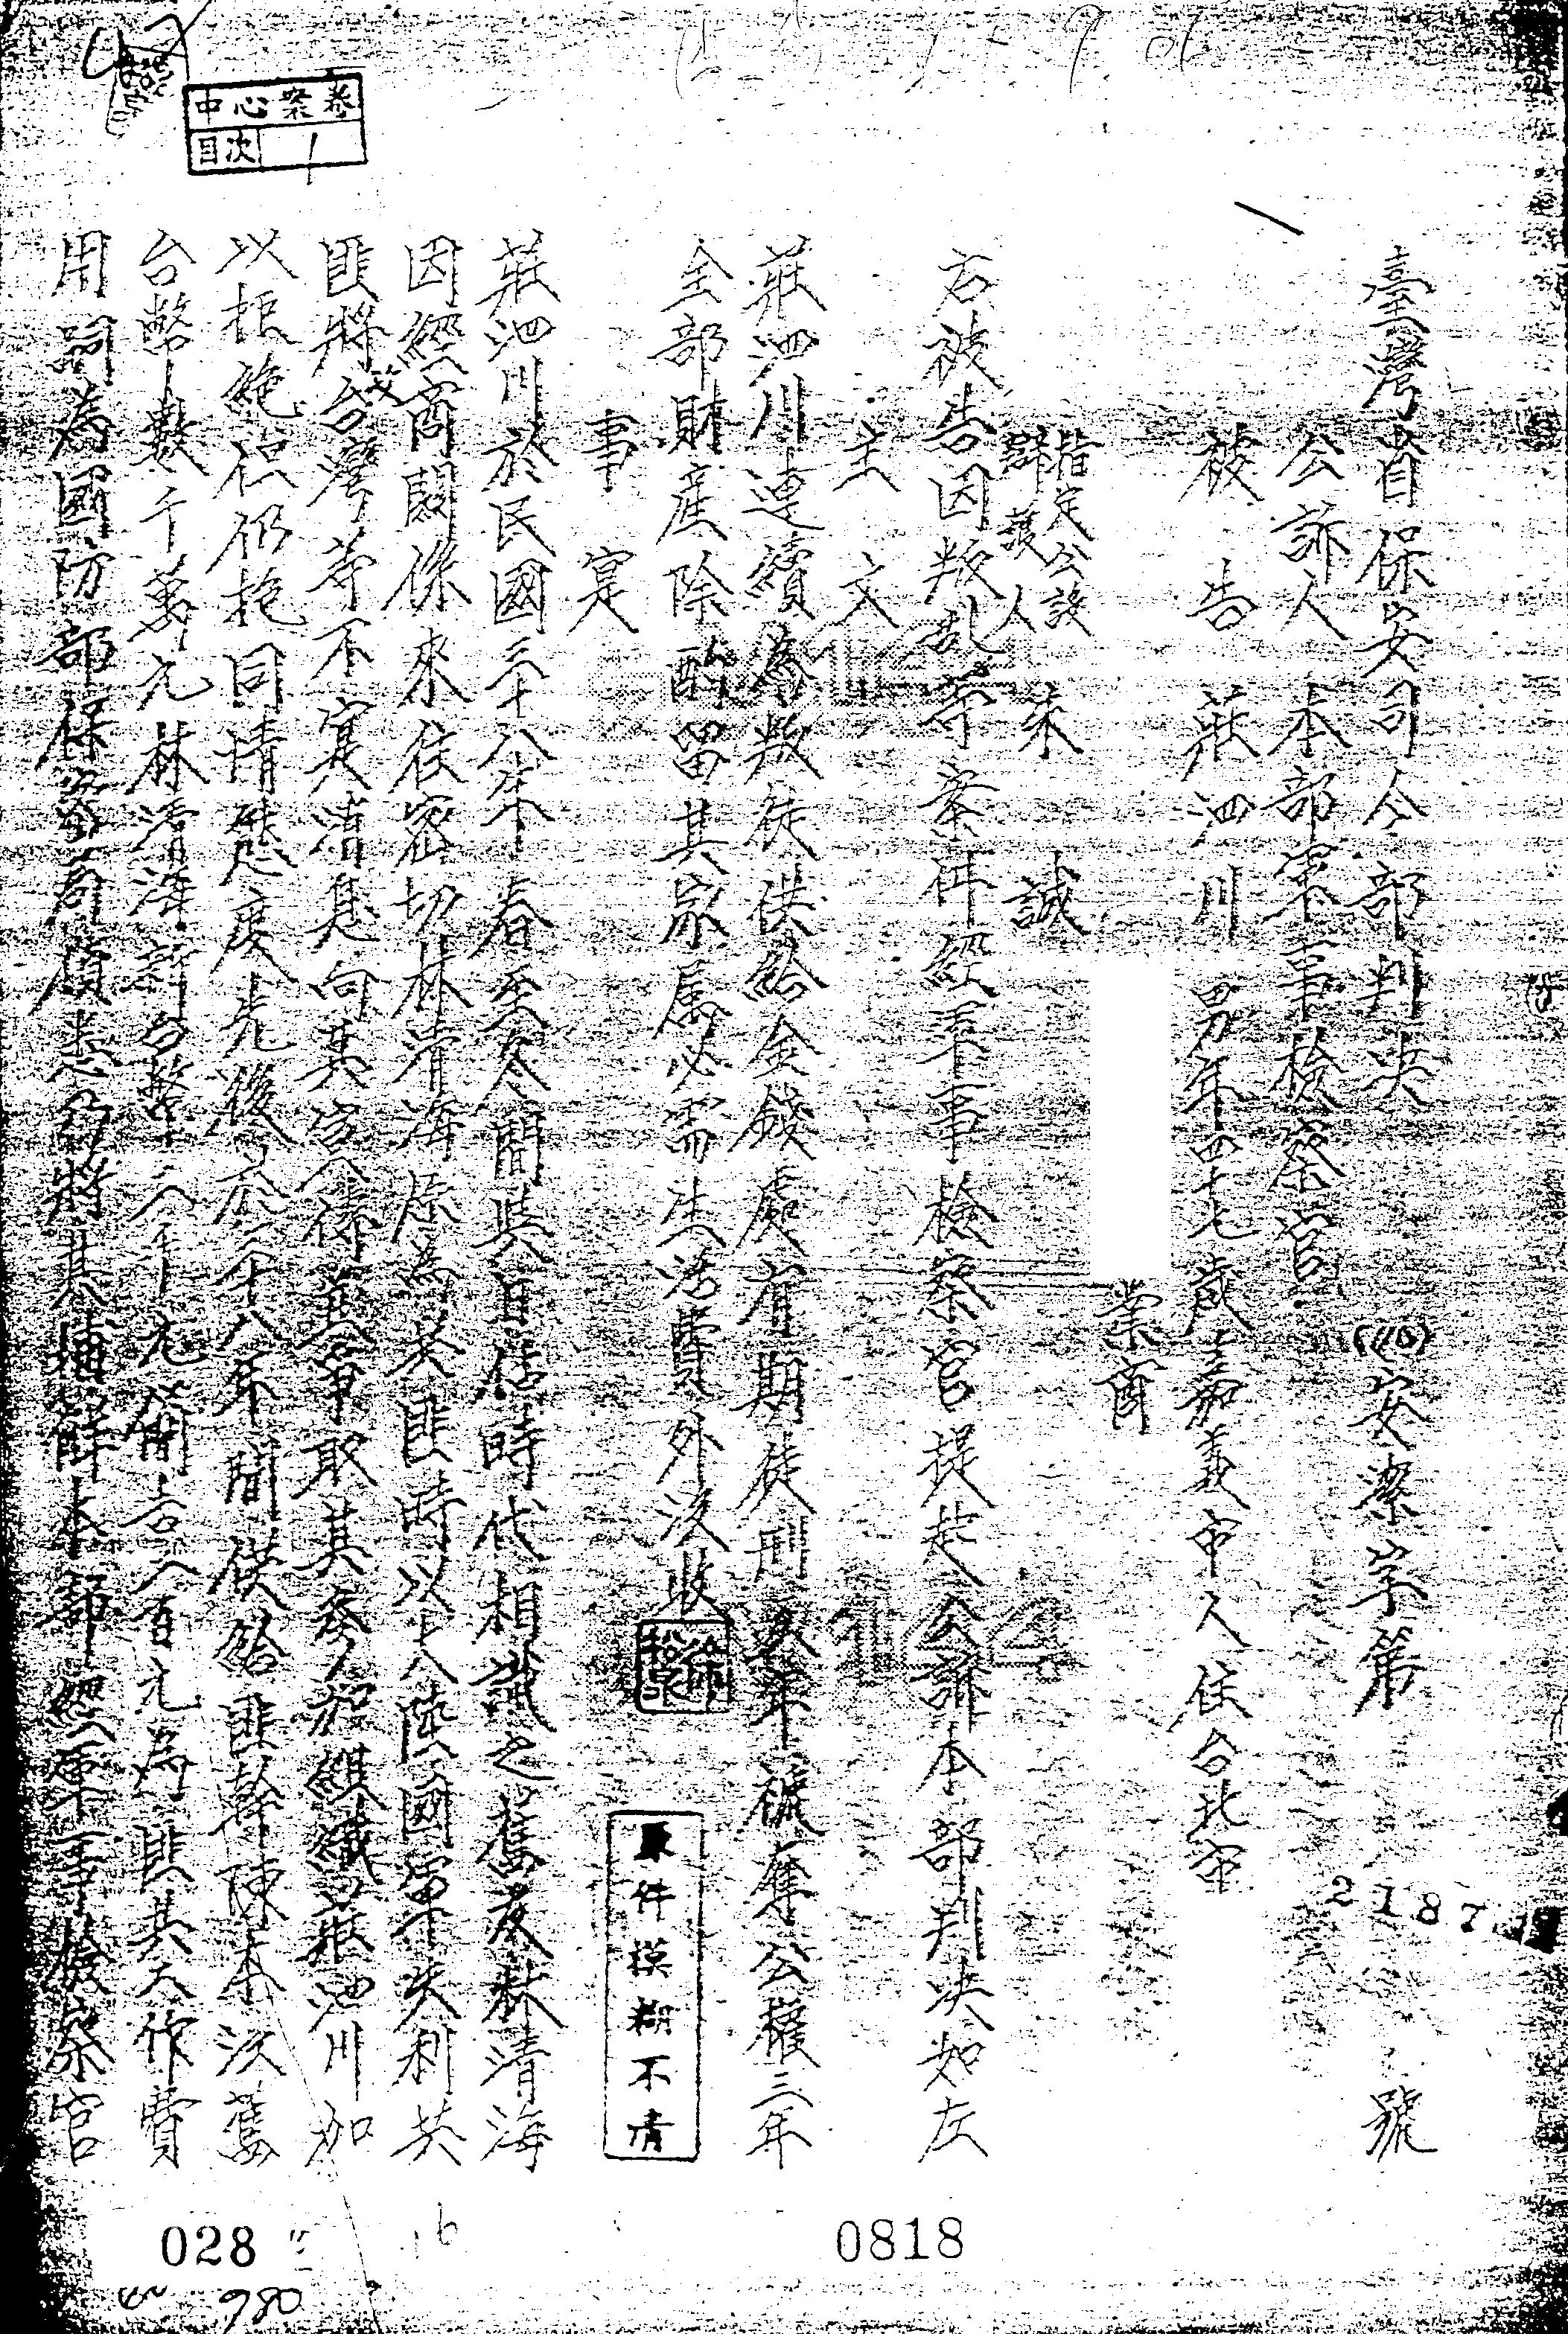 中心案卷
目次 1
臺灣省保安司令部判決 安潔字第 2187 號
公訴人 本部軍事檢察官
被告 莊泗川 男年四十七歲嘉義市人住台北市
業商
指定公設
辯護人 朱 誠
右被告因叛亂等案件經軍事檢察官提起公訴本部判決如左
主文
莊泗川連續為叛徒供給金錢處有期徒刑 年褫奪公權三年
全部財產除酌留其家屬必需生活費外沒收
事實
莊泗川於民國三十八年春至冬間與日佔時代相識之舊友林清海
因經商關係來往密切林清海原為共匪時以大陸國軍失利共
匪將攻台灣等不實消息向其宣傳並爭取其參加組織莊泗川加
以拒絕但仍抱同情態度先後於三十八年間供給匪幹陳本江舊
台幣數千萬元林清海新台幣 元 八百元為匪共工作費
用詞為國防部保密局偵悉乃將其捕解本部經軍事檢察官
原件模糊不清
028
0818
16
980